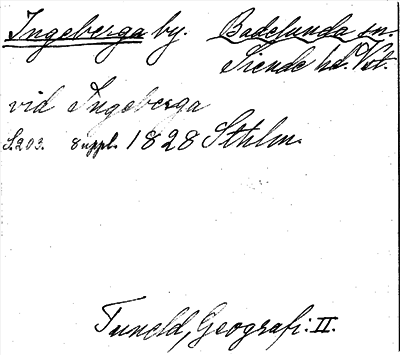 Ingeberga by. Badelunda sn.
Siende hd. Vst.
vid Ingeberga
S. 203. 8 uppl. 1828 Sthlm.
Tuneld, Geografi: II.